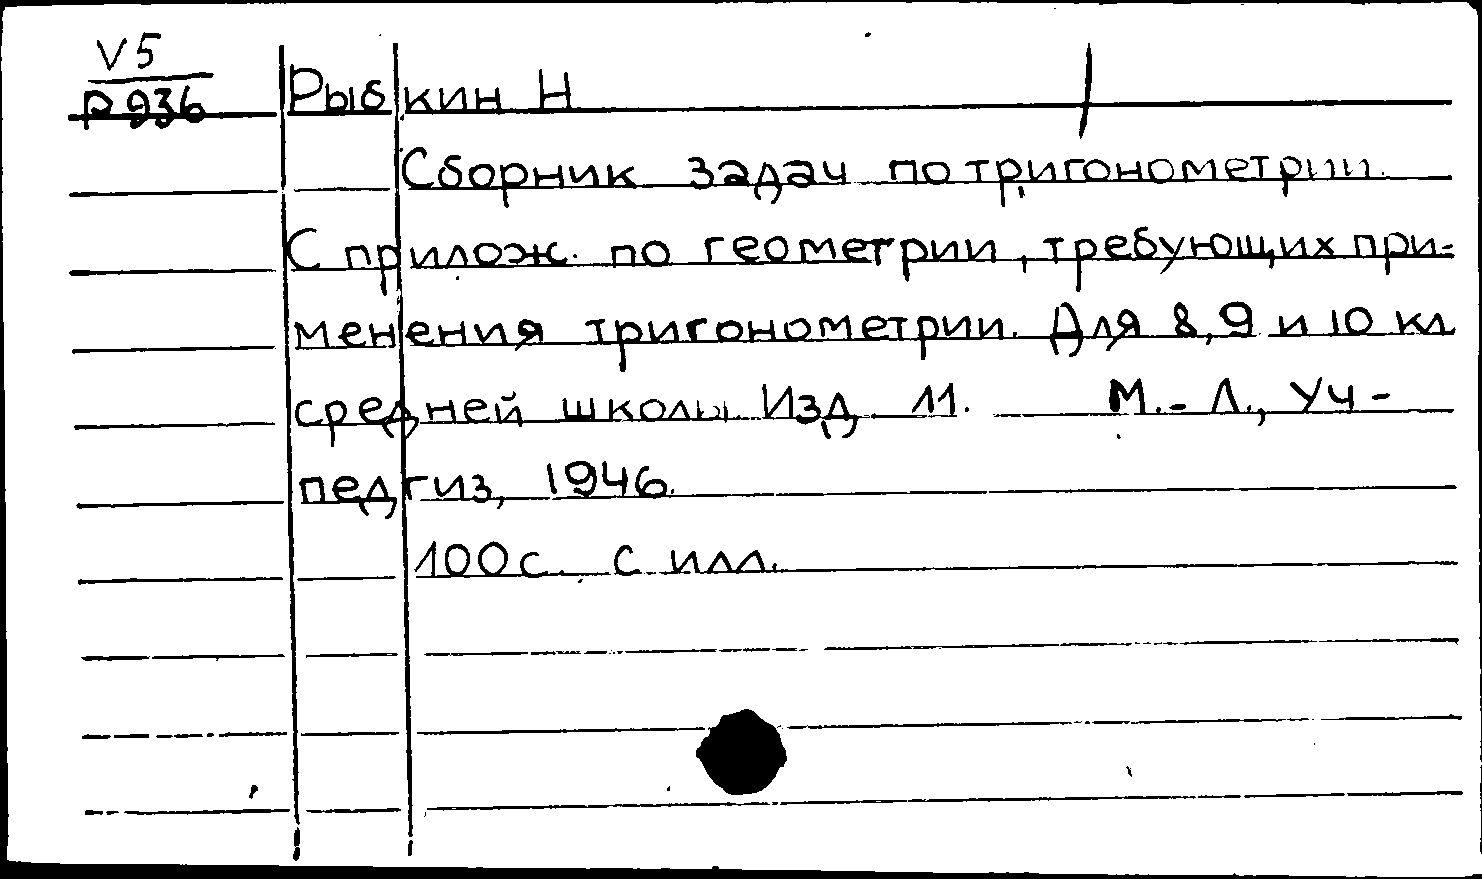 V5
Р936
Рыбкин Н
Сборник задач по тригонометрии.
С прилож. по геометрии, требующих при-
менения тригонометрии. Для 8, 9 и 10 кл
средней школы Изд. 11. М.-Л., Уч-
педгиз, 1946.
100с. с илл.